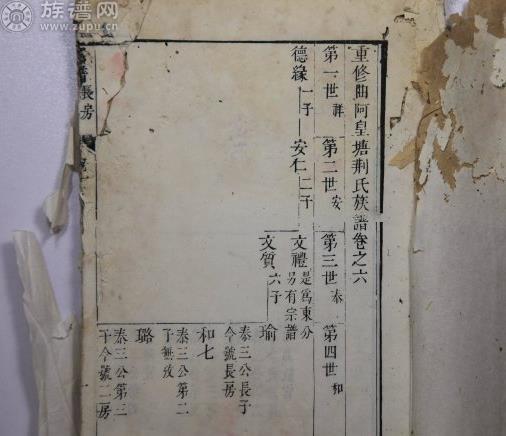 族谱网
www.zupu.cn
重修曲阿皇塘荆氏族譜卷之六
第一世 祥
第二世 安
第三世 泰
第四世 和
德緣 一子
安仁 二子
文禮 是爲東分另有宗譜
文質 六子
瑜 泰三公長子今號長房
和七 泰三公第二子無攷
璐 泰三公第三子今號二房
長房